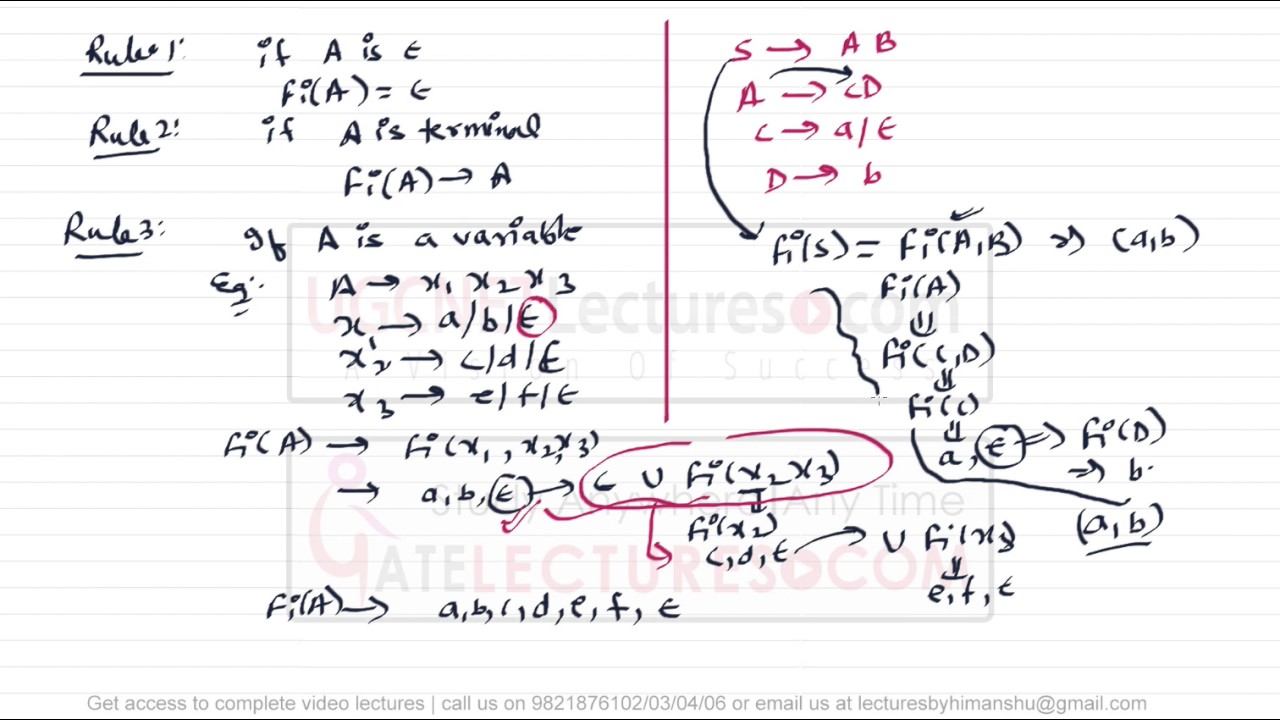 Rule 1: if A is ε
Fi(A) = ε
Rule 2: if A is terminal
Fi(A) → A
Rule 3: If A is a variable
Eg: A → x1 x2 x3
x1 → a/b/ε
x2 → c/d/ε
x3 → e/f/ε
Fi(A) → Fi(x1, x2, x3)
→ a, b, ε → ε ∪ Fi(x2 x3)
Fi(x2)
c, d, ε → ∪ Fi(x3)
e, f, ε
Fi(A) → a, b, c, d, e, f, ε
S → A B
A → CD
C → a/ε
D → b
Fi(S) = Fi(A, B) ⇒ (a, b)
Fi(A)
⇓
Fi(C, D)
⇓
Fi(C)
⇓
a, ε ⇒ Fi(D)
⇒ b.
(a, b)
UGCNETLectures.com
A Vision Of Success
Study Anywhere | Any Time
GATELECTURES.COM
Get access to complete video lectures | call us on 9821876102/03/04/06 or email us at lecturesbyhimanshu@gmail.com